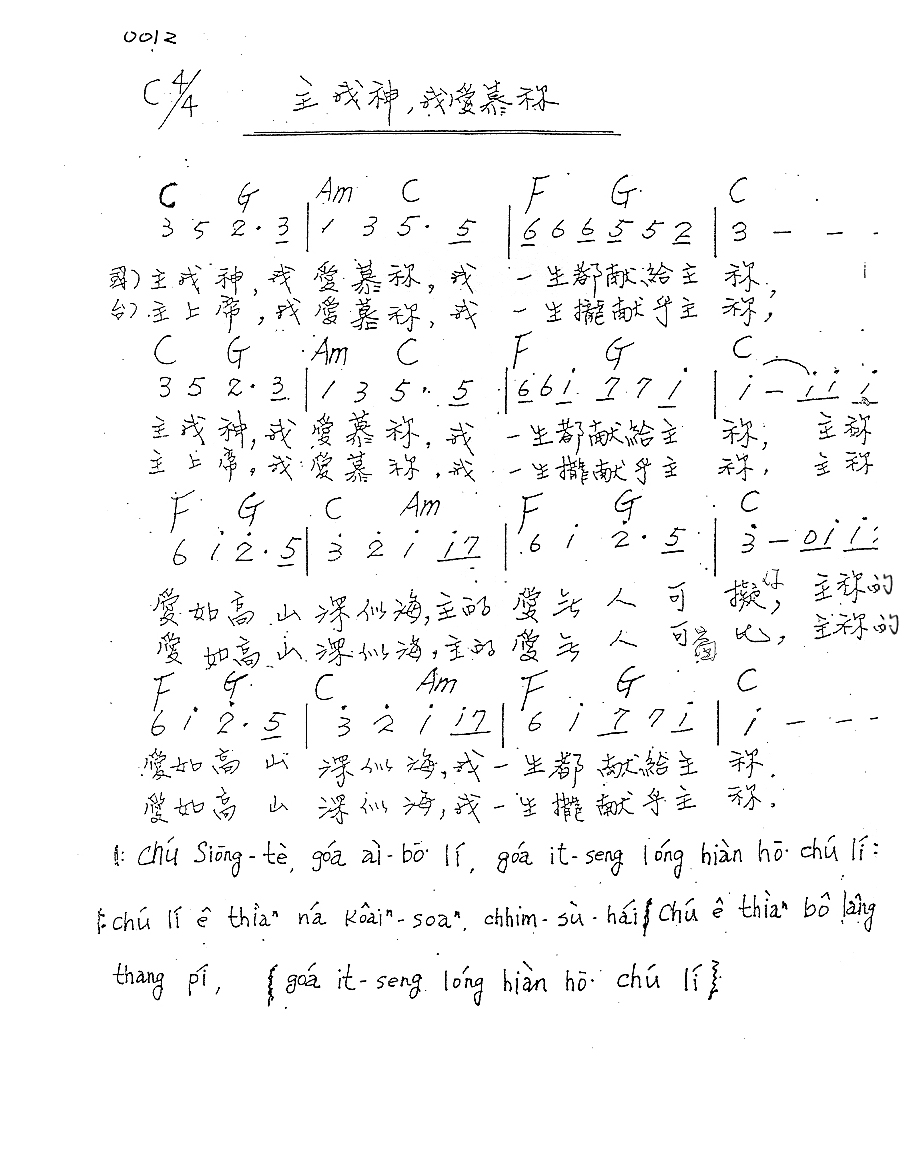 0012
C 4/4 主我神,我愛慕祢
C G Am C F G C
3 5 2· 3 | 1 3 5· 5 | 6 6 6 5 5 2 | 3 — — -
主我神,我愛慕祢,我一生都献給主祢,
台)主上帝,我愛慕祢,我一生攏献乎主祢,
C G Am C F G C
3 5 2· 3 | 1 3 5· 5 | 6 6 i 7 7 i | i — i i i
主我神,我愛慕祢,我一生都献給主祢; 主祢
主上帝,我愛慕祢,我一生攏献乎主祢, 主祢
F G C Am F G C
6 i 2̇· 5 | 3̇ 2̇ i i7 | 6 i 2̇· 5 | 3̇ — 0i i i
愛如高山深似海,主的愛無人可擬, 主祢的
愛如高山深似海,主的愛無人可比, 主祢的
F G C Am F G C
6 i 2̇· 5 | 3̇ 2̇ i i7 | 6 i 7 7 i | i — — -
愛如高山深似海,我一生都献給主祢.
愛如高山深似海,我一生攏献乎主祢.
‖: Chú Siōng-tè, góa aì-bō͘ lí, góa it-seng lóng hiàn hō͘ chú lí:
‖: Chú lí ê thìaⁿ ná Kôaiⁿ-soaⁿ, chhim-sù-hái{ Chú ê thìaⁿ bô lâng
thang pí, { góa it-seng lóng hiàn hō͘ chú lí }